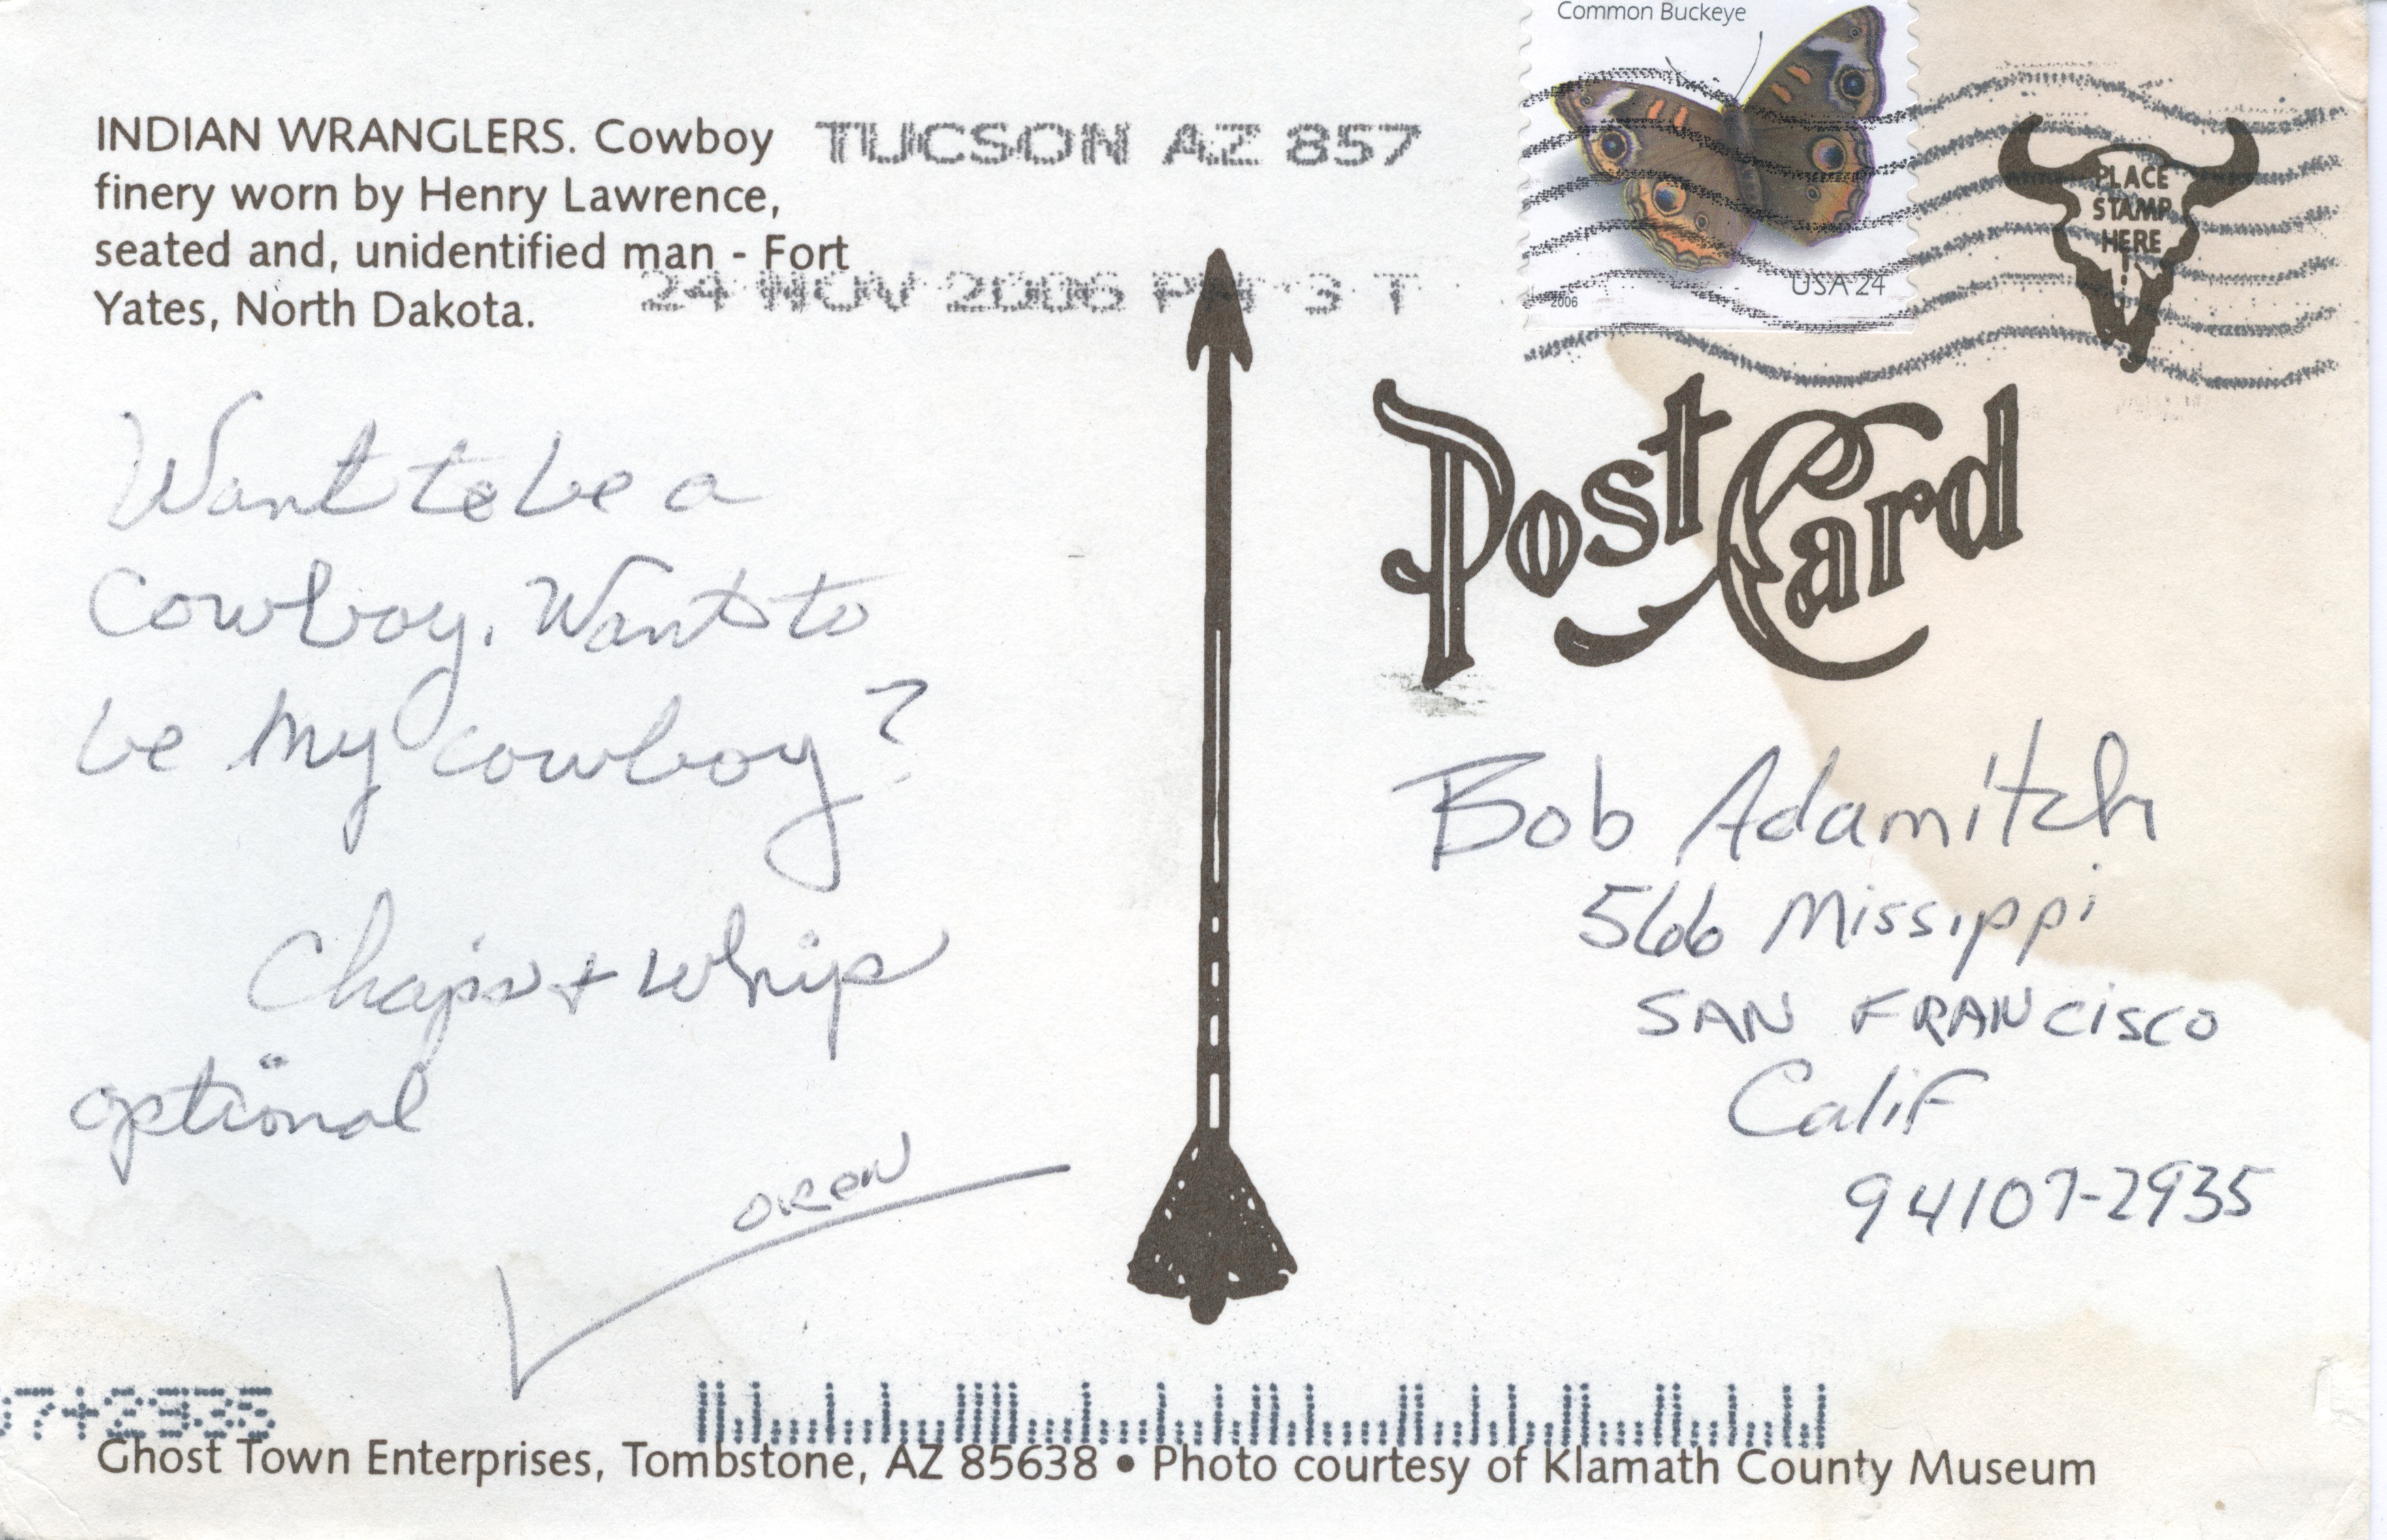 Common Buckeye
USA 24
2006
PLACE
STAMP
HERE
!
TUCSON AZ 857
24 NOV 2006 PM 3 T
INDIAN WRANGLERS. Cowboy
finery worn by Henry Lawrence,
seated and, unidentified man - Fort
Yates, North Dakota.
Post Card
Want to be a
Cowboy. Want to
be my cowboy?
Chaps + whip
optional
OREN
Bob Adamitch
566 Missippi
SAN FRANCISCO
Calif
94107-2935
07+2935
Ghost Town Enterprises, Tombstone, AZ 85638 • Photo courtesy of Klamath County Museum